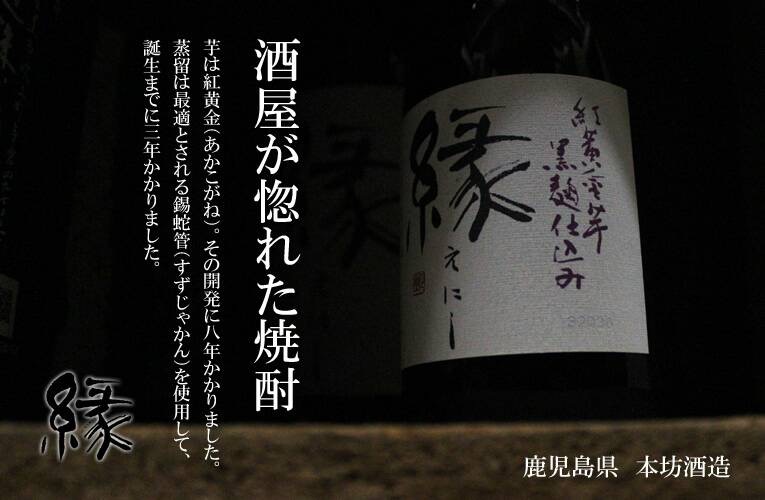 酒屋が惚れた焼酎
芋は紅黄金(あかこがね)。その開発に八年かかりました。
蒸留は最適とされる錫蛇管(すずじゃかん)を使用して、
誕生までに三年かかりました。
紅黄金芋
黒麹仕込み
縁
えにし
縁
鹿児島県 本坊酒造